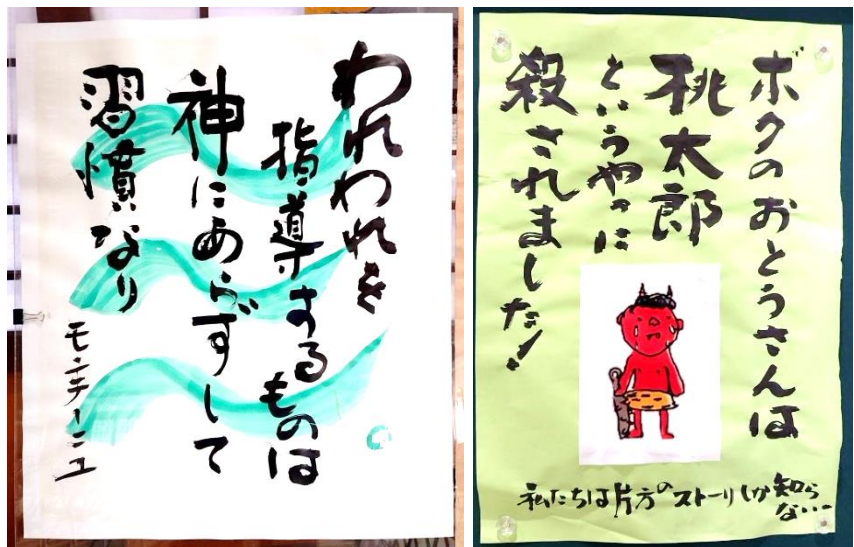 われわれを
指導するものは
神にあらずして
習慣なり
モンテーニュ
ボクのおとうさんは
桃太郎
というやつに
殺されました!
私たちは片方のストーリしか知ら
ない…